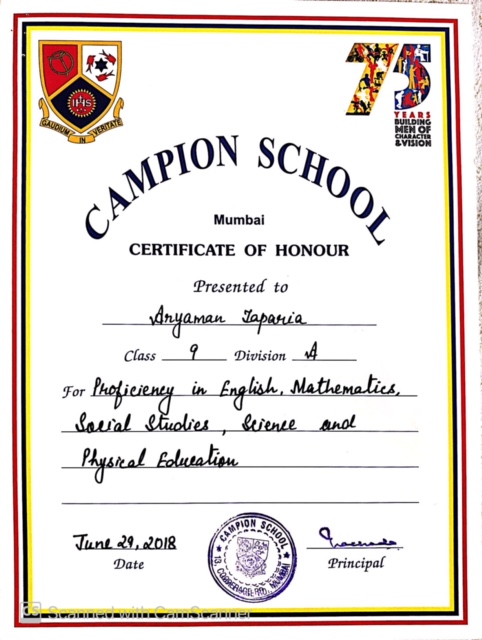 GAUDIUM IN VERITATE
75
YEARS
BUILDING
MEN OF
CHARACTER
& VISION
CAMPION SCHOOL
Mumbai
CERTIFICATE OF HONOUR
Presented to
Aryaman Taparia
Class 9 Division A
For Proficiency in English, Mathematics,
Social Studies, Science and
Physical Education
June 29, 2018
Date
CAMPION SCHOOL
13, COOPERAGE RD., MUMBAI
Principal
CS Scanned with CamScanner